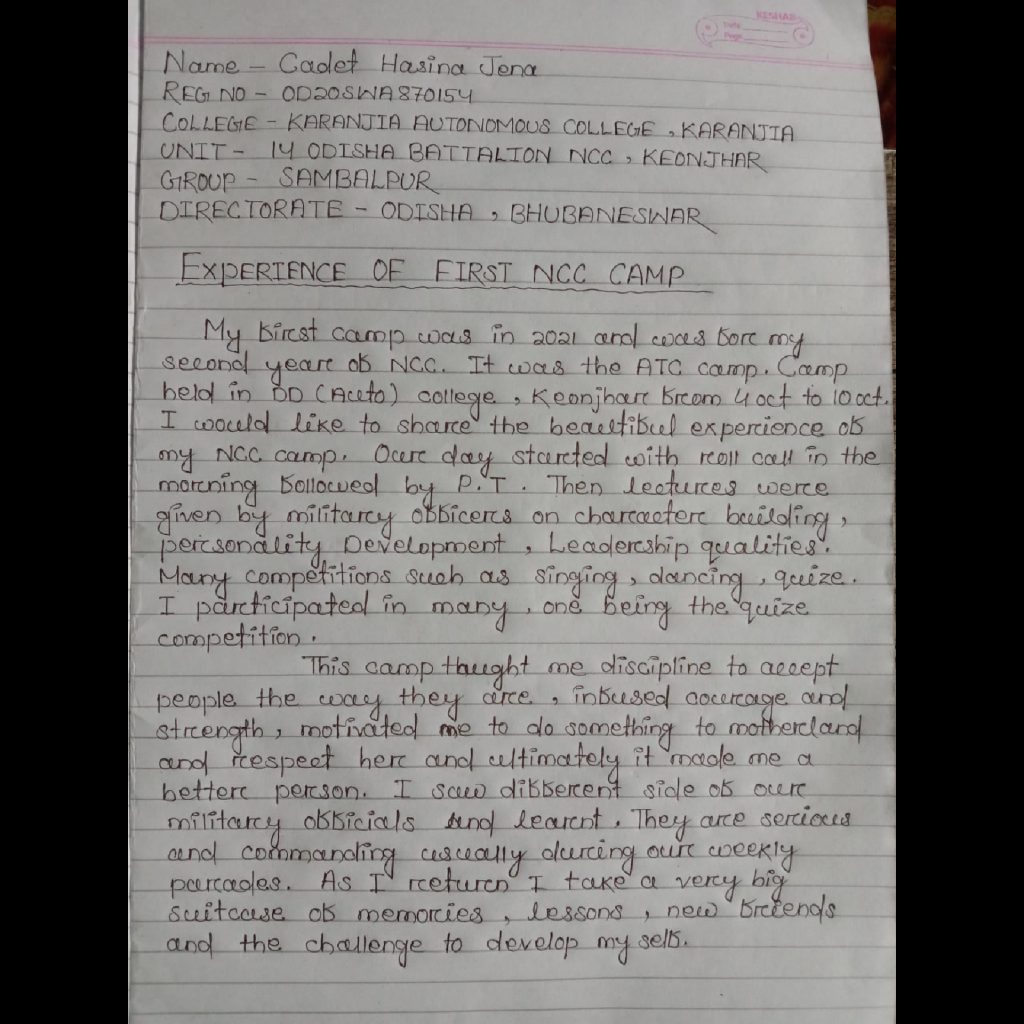 KESHAB
Date
Page
Name - Cadet Hasina Jena
REG NO - OD20SWA870154
COLLEGE - KARANJIA AUTONOMOUS COLLEGE, KARANJIA
UNIT - 14 ODISHA BATTALION NCC, KEONJHAR
GROUP - SAMBALPUR
DIRECTORATE - ODISHA, BHUBANESWAR
EXPERIENCE OF FIRST NCC CAMP
My first camp was in 2021 and was for my
second year of NCC. It was the ATC camp. Camp
held in DD (Auto) college, Keonjhar from 4 oct to 10 oct.
I would like to share the beautiful experience of
my NCC camp. Our day started with roll call in the
morning followed by P.T. Then lectures were
given by military officers on character building,
personality Development, Leadership qualities.
Many competitions such as singing, dancing, quize.
I participated in many, one being the quize
competition.
This camp thaught me discipline to accept
people the way they are, infused courage and
strength, motivated me to do something to motherland
and respect her and ultimately it made me a
better person. I saw different side of our
military officials and learnt. They are serious
and commanding usually during our weekly
parades. As I return I take a very big
suitcase of memories, lessons, new friends
and the challenge to develop my self.